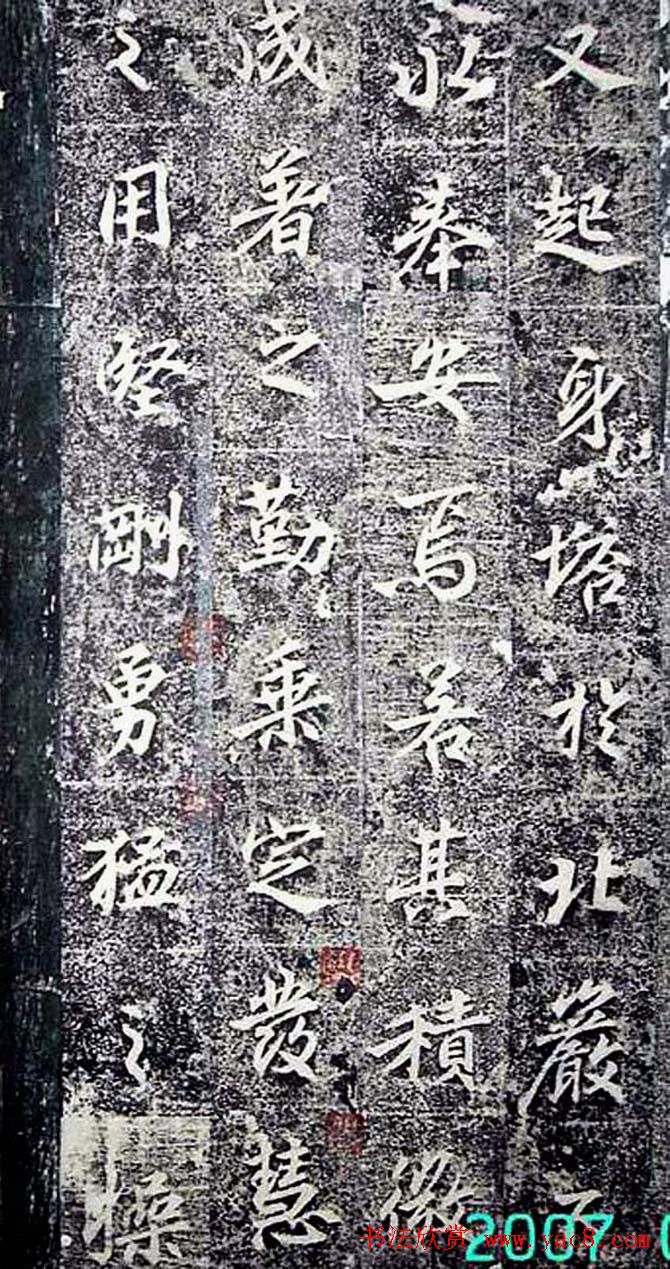 又起身塔於北巖下
永奉安焉若其積微
成著之勤乘定發慧
之用堅剛勇猛之操
书法欣赏 www.yac8.com
2007